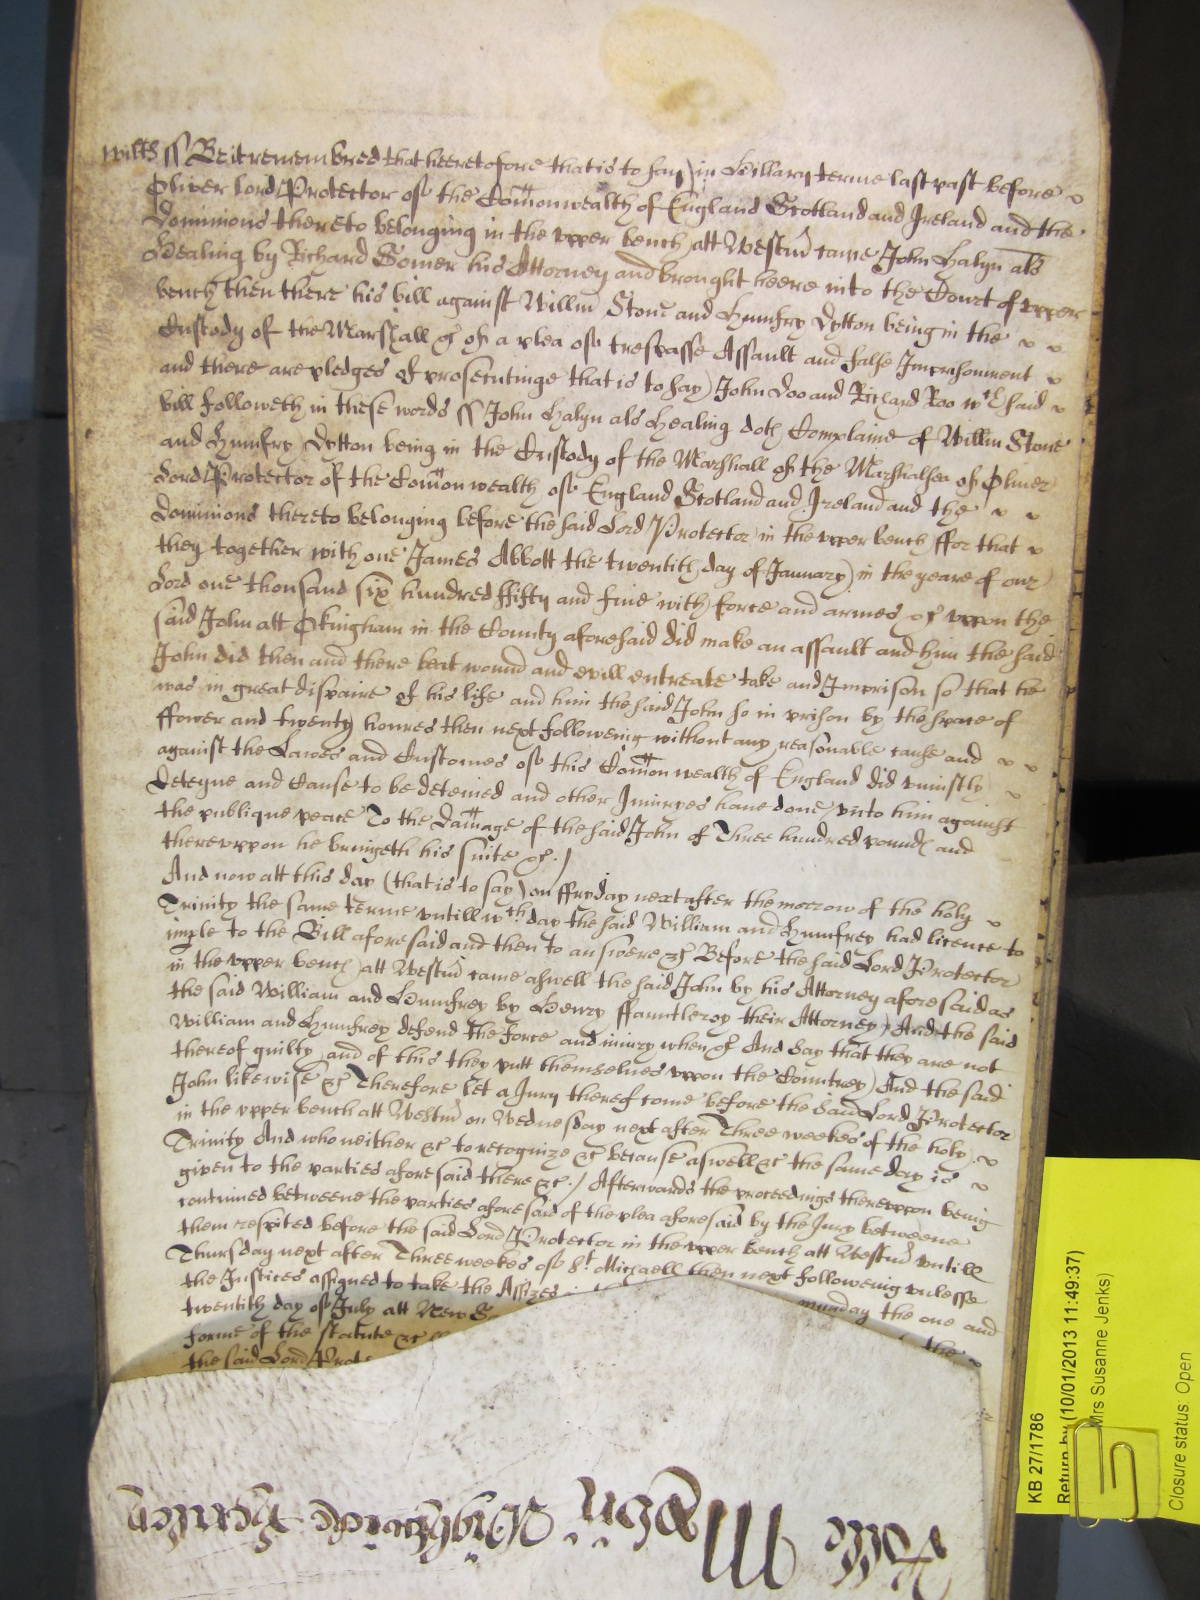 Wilts ss Be it remembred that heeretofore that is to say) in Hillary terme last past before
Oliver Lord Protector of the Com̄onwealth of England Scotland and Ireland and the
Dominions thereto belonging in the vpper bench att Westm̄ came John Halyn als
Healing by Richard Gomer his Attorney and brought heere into the Court of vpper
bench then there his bill against Willm Stone and Humfry Dytton being in the
Custody of the Marshall &c of a plea of trespasse Assault and false Imprisonment
and there are pledges of prosecutinge that is to say) John Doo and Richard Roo wch said
bill followeth in these words ss John Halyn als Healing doth Complaine of Willm Stone
and Humfry Dytton being in the Custody of the Marshall of the Marshalsea of Oliver
Lord Protector of the Com̄onwealth of England Scotland and Ireland and the
Dominions thereto belonging before the said Lord Protector in the vpper bench ffor that
they together with one James Abbott the twentith day of January) in the yeare of our
Lord one thousand six hundred ffifty and five with force and armes &c vpon the
said John att Okingham in the County aforesaid did make an assault and him the said
John did then and there beat wound and evill entreate take and Imprison so that he
was in great dispaire of his life and him the said John so in prison by the space of
ffower and twenty houres then next followeing without any reasonable cause and
against the Lawes and Customes of this Com̄onwealth of England did vniustly
Deteyne and Cause to be deteined and other Iniuryes have done vnto him against
the publique peace To the Dam̄age of the said John of Three hundred pounds and
therevpon he bringeth his suite &c./
And now att this day (that is to say) on ffryday next after the morrow of the holy
Trinity the same terme vntill wch day the said William and Humfrey had licence to
imple to the Bill aforesaid and then to answere &c Before the said Lord Protector
in the vpper bench att Westm̄ came aswell the said John by his Attorney aforesaid as
the said William and Humfrey by Henry ffauntleroy their Attorney) And the said
William and Humfrey defend the force and iniury when &c And Say that they are not
thereof guilty and of this they putt themselves vpon the Countrey) And the said
John likewise &c Therefore let a Jury thereof come before the said Lord Protector
in the vpper bench att Westm̄ on Wednesday next after Three weekes of the holy
Trinity And who neither &c to recognize &c because aswell &c the same day is
given to the parties aforesaid there &c./ Afterwards the proceedings therevpon being
continued betweene the parties aforesaid of the plea aforesaid by the Jury betweene
them respited before the said Lord Protector in the vpper bench att Westm̄ vntill
Thursday next after Three weekes of St Michaell then next followeing vnlesse
the Justices assigned to take the Assizes munday the one and
twentith day of July att New the
forme of the statute &c
the said Lord Prote
KB 27/1786
Return by (10/01/2013 11:49:37)
Mrs Susanne Jenks)
Closure status: Open